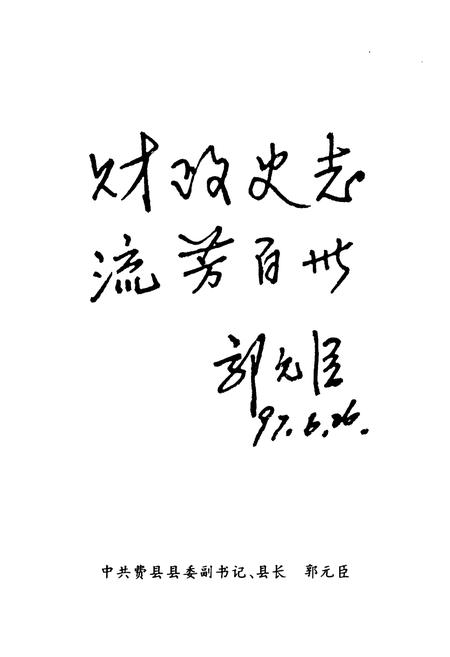 财政史志
流芳百世
郭元臣
97.6.26.
中共费县县委副书记、县长 郭元臣